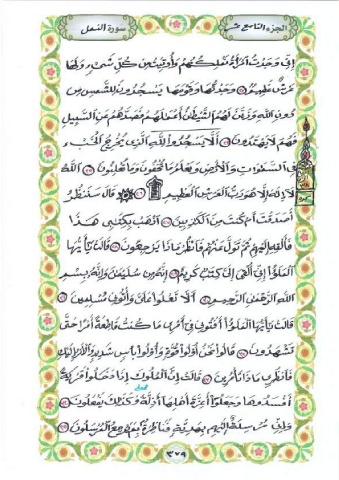 الجزء التاسع عشر
سورة النمل
إني وجدت امرأة تملكهم وأوتيت من كل شيء ولها
عرش عظيم ٢٣ وجدتها وقومها يسجدون للشمس من
دون الله وزين لهم الشيطان أعملهم فصدهم عن السبيل
فهم لا يهتدون ٢٤ ألا يسجدوا لله الذي يخرج الخبء
في السموات والأرض ويعلم ما تخفون وما تعلنون ٢٥ الله
لا إله إلا هو رب العرش العظيم ٢٦ قال سننظر
أصدقت أم كنت من الكذبين ٢٧ اذهب بكتبي هذا
فألقه إليهم ثم تول عنهم فانظر ماذا يرجعون ٢٨ قالت يأيها
الملؤا إني ألقي إلي كتب كريم ٢٩ إنه من سليمن وإنه بسم
الله الرحمن الرحيم ٣٠ ألا تعلوا علي وأتوني مسلمين ٣١
قالت يأيها الملؤا أفتوني في أمري ما كنت قاطعة أمرا حتى
تشهدون ٣٢ قالوا نحن أولوا قوة وأولوا بأس شديد والأمر إليك
فانظري ماذا تأمرين ٣٣ قالت إن الملوك إذا دخلوا قرية
أفسدوها وجعلوا أعزة أهلها أذلة وكذلك يفعلون ٣٤
وإني مرسلة إليهم بهدية فناظرة بم يرجع المرسلون ٣٥
٣٧٩